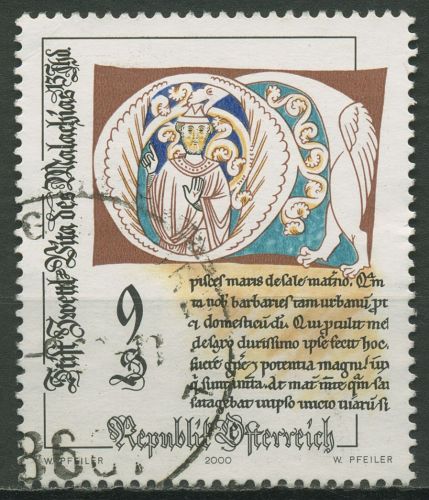 Stift Zwettl-Vita des Malachias 13.Jhd.
pisces maris de sale mat͛no. Qm̄
in nob̛ barbaries tam urbanū p̄t
⁊ domesticū di. Qui ptulit mel
de saxo durissimo ipse fecit hoc.
fuere q̄ꝫ ⁊ potentia magni ⁊ ūp
q̄ sīmitīta. At mat͛ int͛e qm̄ san
satagebat ut ip̄so inicio uiarū si
9
S
Republik Österreich
W. PFEILER 2000 W. PFEILER